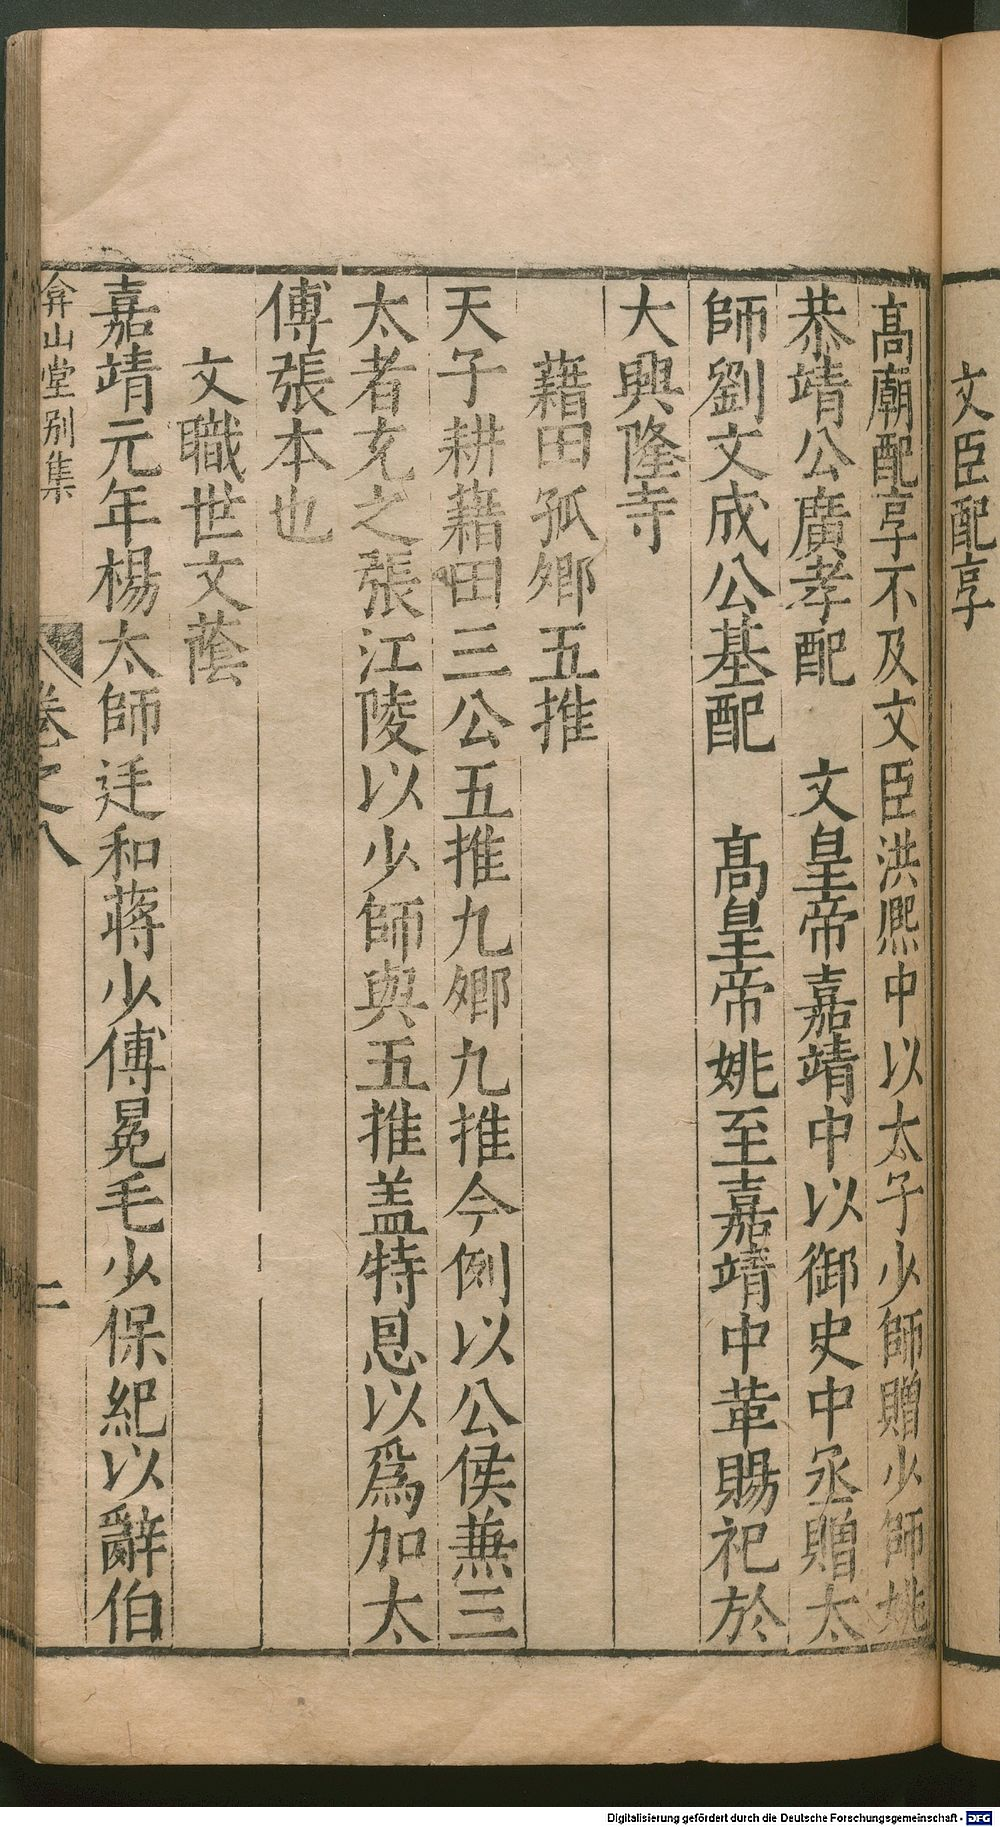 文臣配享
高廟配享不及文臣洪熈中以太子少師贈少師姚
恭靖公廣孝配　文皇帝嘉靖中以御史中丞贈太
師劉文成公基配　高皇帝姚至嘉靖中革賜祀於
大興隆寺
藉田孤卿五推
天子耕藉田三公五推九卿九推今例以公侯兼三
太者充之張江陵以少師與五推盖特恩以爲加太
傅張本也
文職世文蔭
嘉靖元年楊太師廷和蔣少傅冕毛少保紀以辭伯
弇山堂别集
卷之八
二
Digitalisierung gefördert durch die Deutsche Forschungsgemeinschaft - DFG